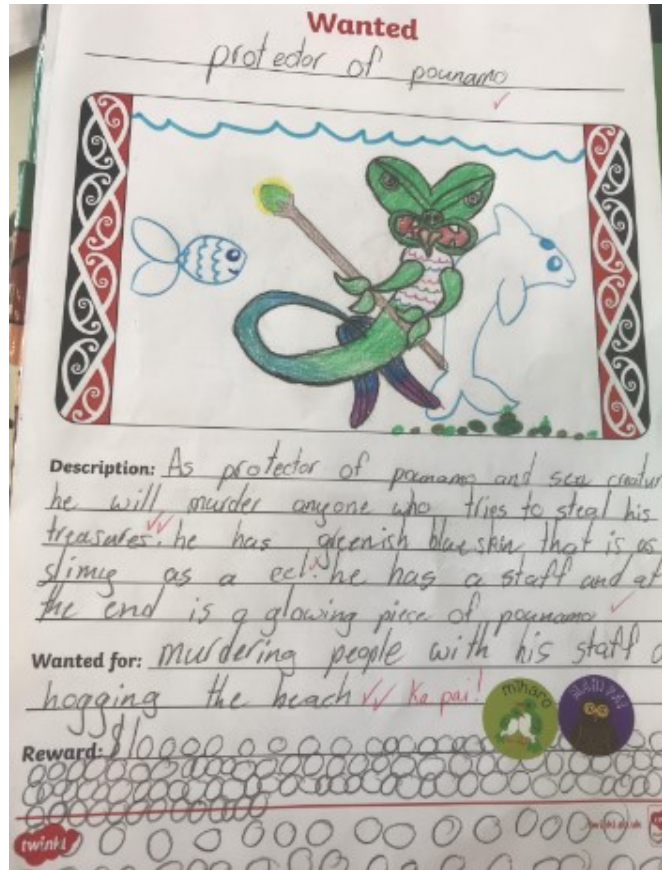 Wanted
protector of pounamo
Description: As protector of pounamo and sea
he will murder anyone who tries to steal his
treasures. he has greenish blue skin that is as
slimy as a eel. he has a staff and at
the end is a glowing piece of pounamo
Wanted for: murdering people with his staff
hogging the beach Ka pai!
mīharo
Reward: $10000
twinkl